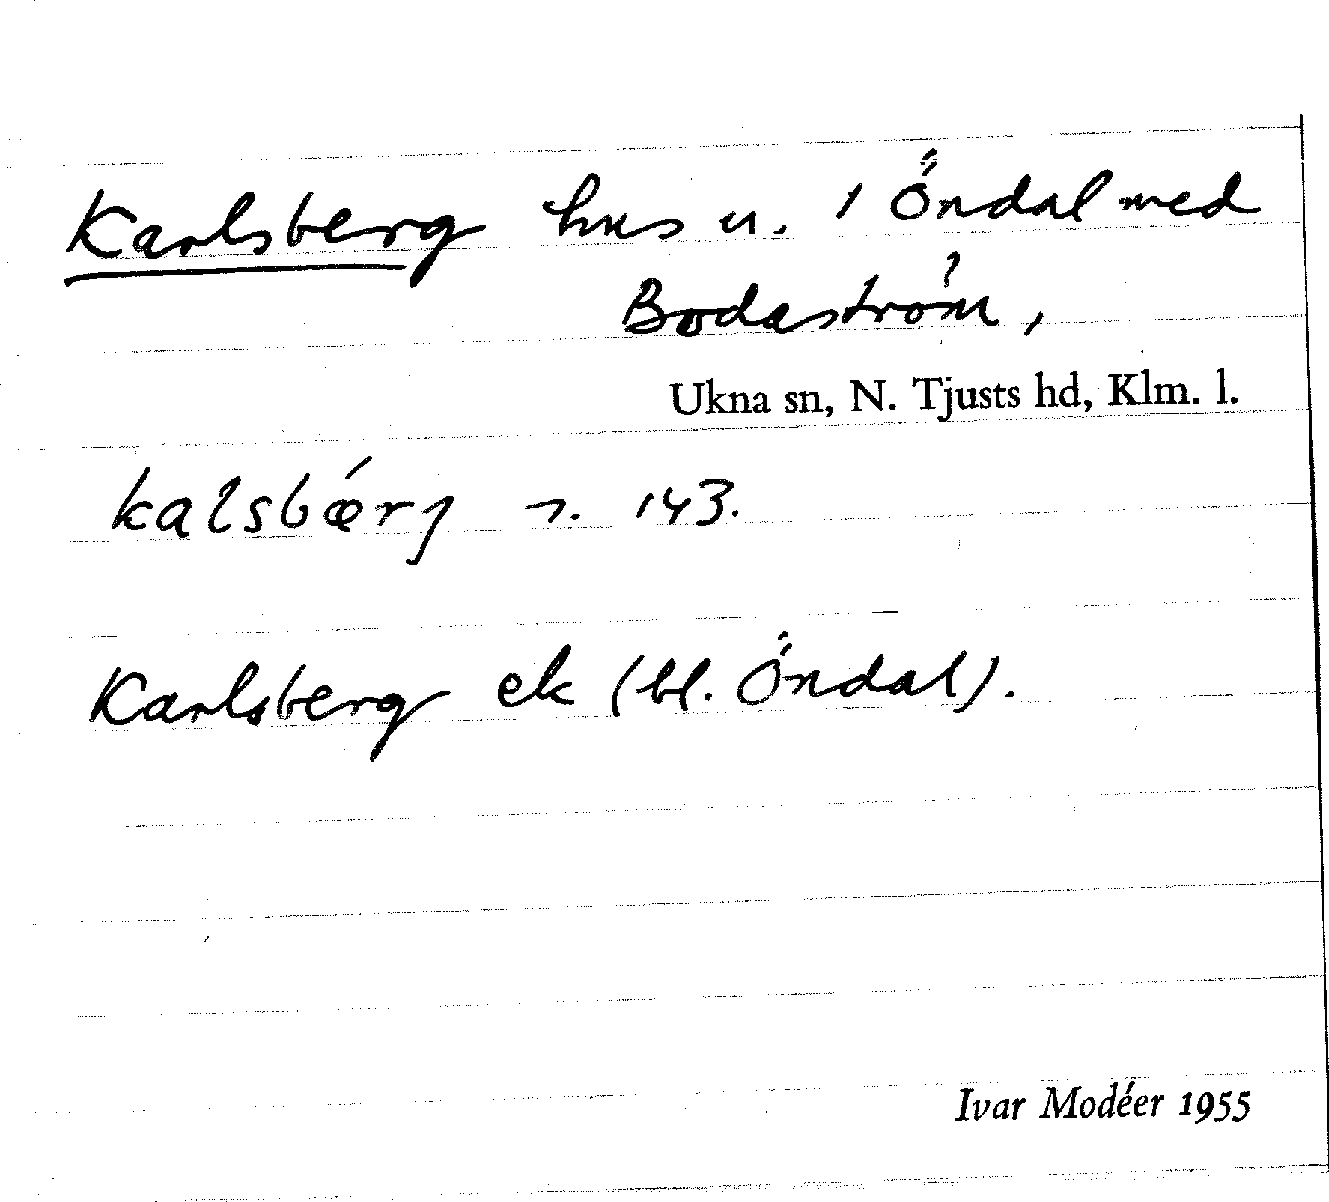 Karlsberg hus u. 1 Öndal med
Bodaström,
Ukna sn, N. Tjusts hd, Klm. l.
kalsbǽrj 143.
Karlsberg ek (bl. Öndal).
Ivar Modéer 1955